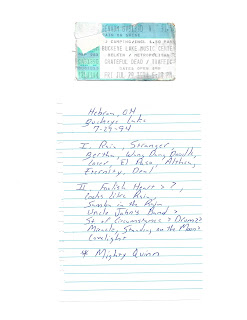 BUCKEYE LAKE MUSIC CENTER
GRATEFUL DEAD / TRAFFIC
GATES OPEN 4PM
FRI JUL 29, 1994 6:30 PM
Hebron, OH
Buckeye Lake
7-29-94
I. Rain, Stranger,
Bertha, Wang Dang Doodle,
Loser, El Paso, Althea,
Eternity, Deal
II. Foolish Heart > ?,
Looks Like Rain,
Samba in the Rain
Uncle John's Band >
St. of Circumstance > Drumz >
Miracle, Standing on the Moon >
Lovelight
* Mighty Quinn